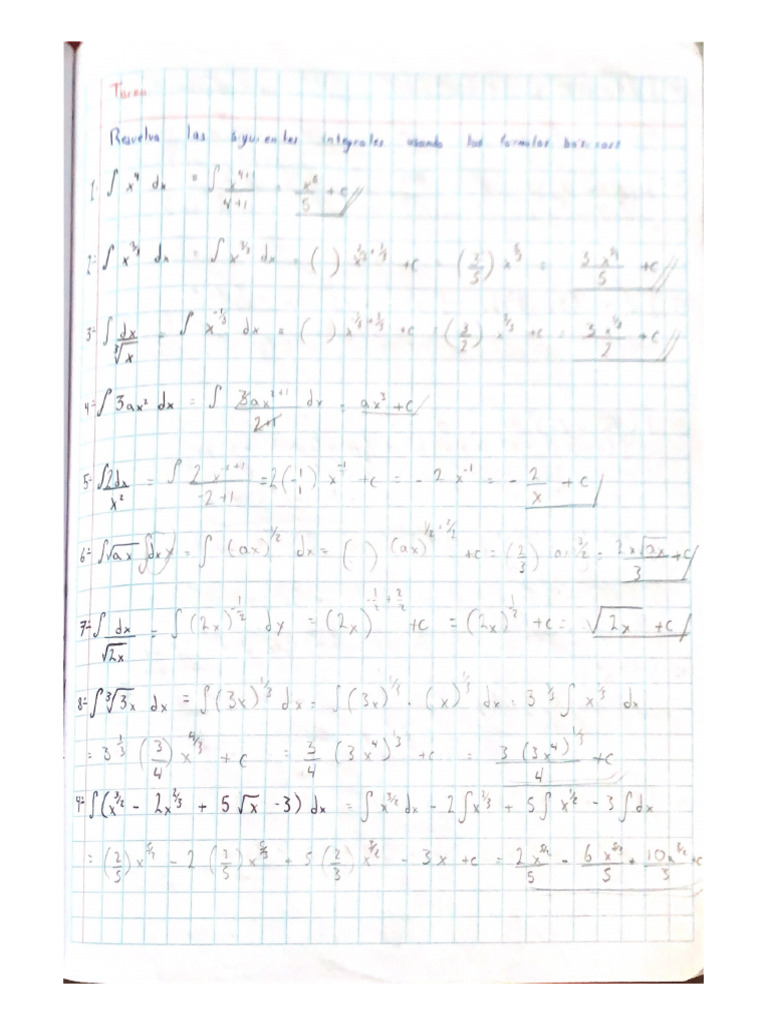 Tarea
Resuelva las siguientes integrales usando las formulas básicas
1- ∫ x⁴ dx = ∫ x⁴⁺¹/4+1 = x⁶/5 + c //
2- ∫ x^(2/3) dx = ∫ x^(2/3) dx = ( ) x^(2/3 + 3/3) + c = (3/5) x^(5/3) = 3x^(5/3)/5 + c //
3- ∫ dx/∛x = ∫ x^(-1/3) dx = ( ) x^(-1/3 + 3/3) + c = (3/2) x^(2/3) + c = 3x^(2/3)/2 + c //
4- ∫ 3ax² dx = ∫ 3ax²⁺¹/2+1 dx = ax³ + c /
5- ∫ 2dx/x² = ∫ 2 x^(-2+1)/-2+1 = 2(-1/1) x^(-1) + c = - 2 x⁻¹ = - 2/x + c /
6- ∫ √ax dx = ∫ (ax)^(1/2) dx = ( ) (ax)^(1/2 + 2/2) + c = (2/3) ax^(3/2) = 2x√ax/3 + c /
7- ∫ dx/√2x = ∫ (2x)^(-1/2) dx = (2x)^(-1/2 + 2/2) + c = (2x)^(1/2) + c = √2x + c /
8- ∫ ∛3x dx = ∫ (3x)^(1/3) dx = ∫ (3x)^(1/3) · (x)^(1/3) dx = 3^(1/3) ∫ x^(1/3) dx
= 3^(1/3) (3/4) x^(4/3) + c = 3/4 (3x⁴)^(1/3) + c = 3 (3x⁴)^(1/3)/4 + c
9- ∫ (x^(3/2) - 2x^(2/3) + 5√x - 3) dx = ∫ x^(3/2) dx - 2∫ x^(2/3) + 5∫ x^(1/2) - 3∫ dx
= (2/5) x^(5/2) - 2 (3/5) x^(5/3) + 5 (2/3) x^(3/2) - 3x + c = 2x^(5/2)/5 - 6x^(5/3)/5 + 10x^(3/2)/3 + c